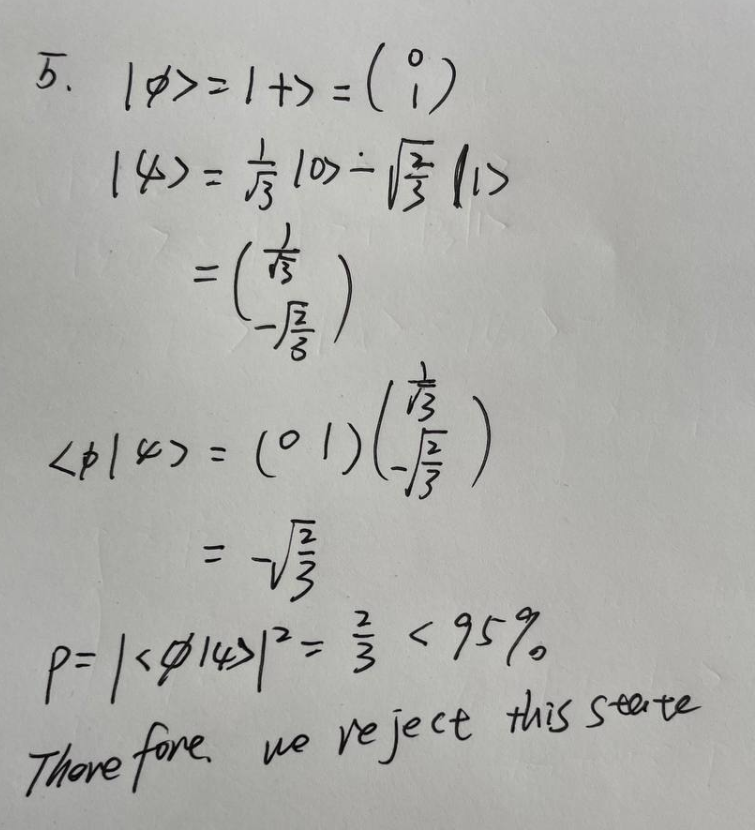 5. |ϕ> = |+> = (0 1)
|ψ> = 1/√3 |0> - √(2/3) |1>
= (1/√3 -√(2/3))
<ϕ|ψ> = (0 1) (1/√3 -√(2/3))
= -√(2/3)
P = |<ϕ|ψ>|² = 2/3 < 95%
Therefore. we reject this state